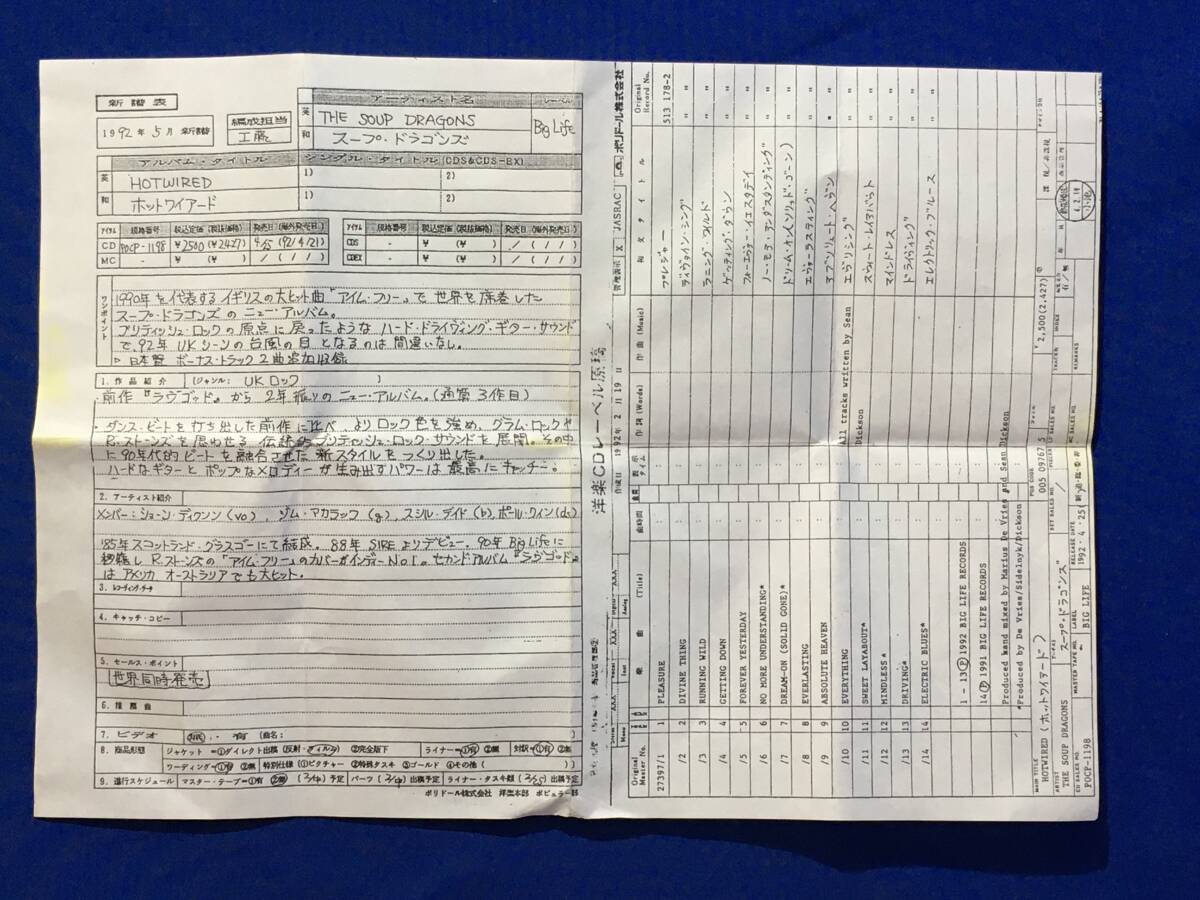 新譜表
1992年5月 新譜
編成担当
工藤
アーティスト名
レーベル
英 THE SOUP DRAGONS
和 スープ・ドラゴンズ
Big Life
アルバム・タイトル シングル・タイトル(CDS&CDS-EX)
英 HOTWIRED 1) 2)
和 ホットワイアード 1) 2)
アイテム 規格番号 税込定価(税抜価格) 発売日(海外発売日)
CD POCP-1198 ¥2500 (¥2427) (92/4/21)
MC - ¥ (¥ ) / ( / / )
アイテム 規格番号 税込定価(税抜価格) 発売日(海外発売日)
CDS - ¥ (¥ ) / ( / / )
CDEX - ¥ (¥ ) / ( / / )
ワンポイント
1990年を代表するイギリスの大ヒット曲"アイム・フリー"で世界を席巻した
スープ・ドラゴンズのニュー・アルバム。
ブリティッシュ・ロックの原点に戻ったようなハード・ドライヴィング・ギター・サウンド
で、92年UKシーンの台風の目となるのは間違いなし。
▷ 日本盤 ボーナス・トラック2曲追加収録
1. 作品紹介 (ジャンル: UKロック )
前作『ラヴゴッド』から2年振りのニュー・アルバム。(通算3作目)
・ダンス・ビートを打ち出した前作に比べ、よりロック色を強め、グラム・ロックや
R.ストーンズを思わせる伝統的ブリティッシュ・ロック・サウンドを展開。その中
に90年代的ビートを融合させた新スタイルをつくり出した。
ハードなギターとポップなメロディーが生み出すパワーは最高にキャッチー。
2. アーティスト紹介
メンバー:ショーン・ディクソン(vo)、ジム・マカラック(g)、スシル・デイド(b)、ポール・クィン(ds)
'85年スコットランド・グラスゴーにて結成。88年SIREよりデビュー。90年Big Lifeに
移籍しR.ストーンズの「アイム・フリー」のカバーがインディーNo1。セカンドアルバム『ラヴゴッド』
はアメリカ オーストラリアでも大ヒット。
3. レコーディング・データ
4. キャッチ・コピー
5. セールス・ポイント
世界同時発売
6. 推薦曲
7. ビデオ 無・有(曲名: )
8. 商品形態 ジャケット=①ダイレクト出稿(反射・フィルム) ②完全版下 ライナー=①有 ②無 対訳=①有 ②無
ワーディング=①有 ②無 特別仕様(①ピクチャー ②特殊タスキ ③ゴールド ④その他( ))
9. 進行スケジュール マスター・テープ=①有 ②無 予定 パーツ 出稿予定 ライナー・タスキ類 出稿予定
ポリドール株式会社 洋楽本部 ポピュラー部
洋楽CDレーベル原稿
作成日 1992年2月19日
管理表示 X JASRAC
ポリドール株式会社
Original Master No.
楽曲 (Title)
曲時間
表示タイム
作詞 (Words)
作曲 (Music)
和文タイトル
Original Record No.
27397/1 1 PLEASURE プレジャー 513 178-2
/2 2 DIVINE THING ディヴァイン・シング "
/3 3 RUNNING WILD ラニング・ワイルド "
/4 4 GETTING DOWN ゲッティング・ダウン "
/5 5 FOREVER YESTERDAY フォーエヴァー・イエスタデイ "
/6 6 NO MORE UNDERSTANDING* ノー・モア・アンダスタンディング "
/7 7 DREAM-ON (SOLID GONE)* ドリーム・オン(ソリッド・ゴーン) "
/8 8 EVERLASTING エヴァーラスティング "
/9 9 ABSOLUTE HEAVEN アブソリュート・ヘヴン "
/10 10 EVERYTHING エヴリシング "
/11 11 SWEET LAYABOUT* スウィート・レイアバウト "
/12 12 MINDLESS* マインドレス "
/13 13 DRIVING* ドライヴィング "
/14 14 ELECTRIC BLUES* エレクトリック・ブルース "
All tracks written by Sean
Dickson
1 - 13 Ⓟ 1992 BIG LIFE RECORDS
14 Ⓟ 1991 BIG LIFE RECORDS
Produced and mixed by Marius De Vries and Sean Dickson
*Produced by De Vries/Sidelnyk/Dickson
MAIN TITLE
HOTWIRED (ホットワイアード)
POS CODE
005 09767 5
¥2,500(2,427)
ARTIST
THE SOUP DRAGONS スープ・ドラゴンズ
SET SALES NO.
CD SALES NO.
POCP-1198
MASTER TAPE NO.
LABEL
BIG LIFE
RELEASE DATE
1992・4・25
MC SALES NO.
REMARKS
INDEX
有/無
4.2.19
小池